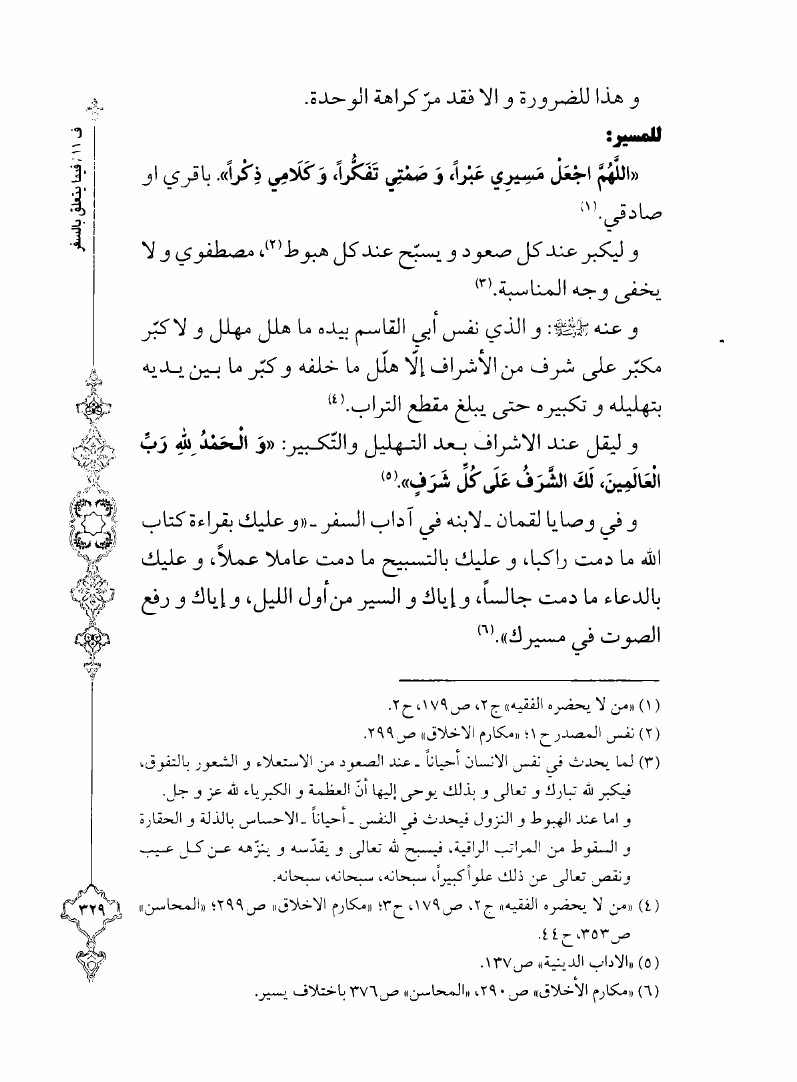 و هذا للضرورة و الا فقد مرّ كراهة الوحدة.
للمسير:
«اللَّهُمَّ اجْعَلْ مَسِيرِي عَبْراً، وَ صَمْتِي تَفَكُّراً، وَ كَلَامِي ذِكْراً». باقري او
صادقي.(١)
و ليكبر عند كل صعود و يسبّح عند كل هبوط(٢)، مصطفوي و لا
يخفى وجه المناسبة.(٣)
و عنه ﷺ: و الذي نفس أبي القاسم بيده ما هلل مهلل و لا كبّر
مكبّر على شرف من الأشراف إلّا هلّل ما خلفه و كبّر ما بين يديه
بتهليله و تكبيره حتى يبلغ مقطع التراب.(٤)
و ليقل عند الاشراف بعد التهليل والتّكبير: «وَ الْحَمْدُ لِلهِ رَبِّ
الْعَالَمِينَ، لَكَ الشَّرَفُ عَلَى كُلِّ شَرَفٍ».(٥)
و في وصايا لقمان ـ لابنه في آداب السفر ـ «و عليك بقراءة كتاب
الله ما دمت راكبا، و عليك بالتسبيح ما دمت عاملا عملاً، و عليك
بالدعاء ما دمت جالساً، و إياك و السير من أول الليل، و إياك و رفع
الصوت في مسيرك».(٦)
(١) «من لا يحضره الفقيه» ج٢، ص١٧٩، ح٢.
(٢) نفس المصدر ح١؛ «مكارم الاخلاق» ص٢٩٩.
(٣) لما يحدث في نفس الانسان أحياناً ـ عند الصعود من الاستعلاء و الشعور بالتفوق،
فيكبر لله تبارك و تعالى و بذلك يوحى إليها أنّ العظمة و الكبرياء لله عز و جل.
و اما عند الهبوط و النزول فيحدث في النفس ـ أحياناً ـ الاحساس بالذلة و الحقارة
و السقوط من المراتب الراقية، فيسبح لله تعالى و يقدّسه و ينزّهه عن كل عيب
ونقص تعالى عن ذلك علواً كبيراً، سبحانه، سبحانه، سبحانه.
(٤) «من لا يحضره الفقيه» ج٢، ص١٧٩، ح٣؛ «مكارم الاخلاق» ص٢٩٩؛ «المحاسن»
ص٣٥٣، ح٤٤.
(٥) «الاداب الدينية» ص١٣٧.
(٦) «مكارم الأخلاق» ص٢٩٠، «المحاسن» ص٣٧٦ باختلاف يسير.
ف ١١ / فيما يتعلق بالسفر
٣٢٩